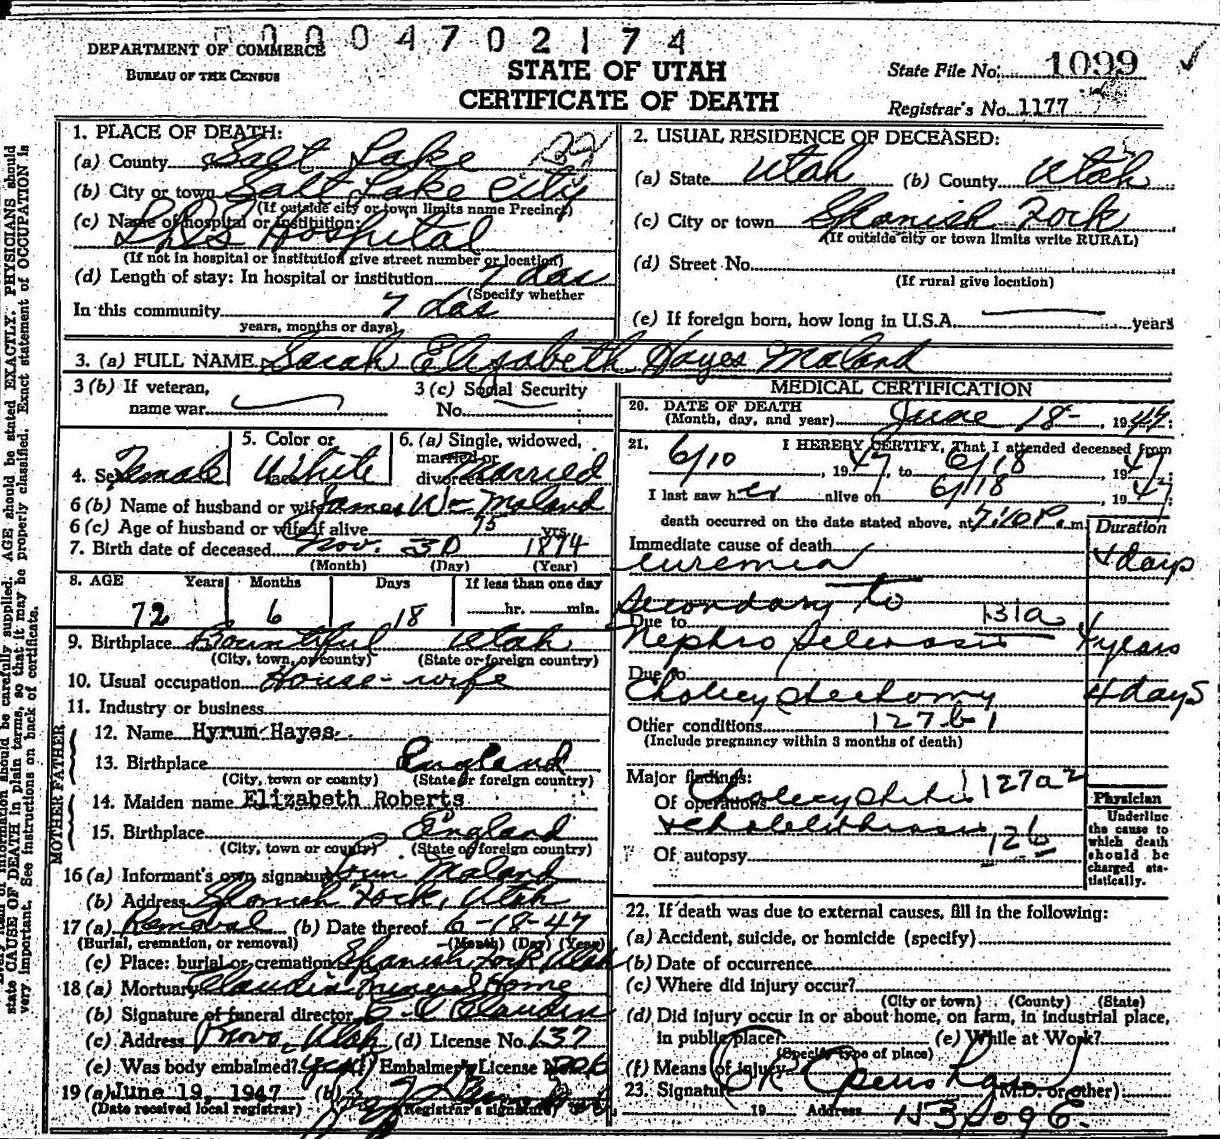 0000470 2 1 7 4
DEPARTMENT OF COMMERCE
BUREAU OF THE CENSUS
STATE OF UTAH
CERTIFICATE OF DEATH
State File No. 1099
Registrar's No. 1177
state CAUSE OF DEATH in plain terms, so that it may be properly classified. Exact statement of OCCUPATION is
very important. See instructions on back of certificate.
information should be carefully supplied. AGE should be stated EXACTLY. PHYSICIANS should
1. PLACE OF DEATH:
(a) County Salt Lake
(b) City or town Salt Lake City
(If outside city or town limits name Precinct)
(c) Name of hospital or institution:
LDS Hospital
(If not in hospital or institution give street number or location)
(d) Length of stay: In hospital or institution 7 das
(Specify whether
In this community 7 das
years, months or days)
2. USUAL RESIDENCE OF DECEASED:
(a) State Utah (b) County Utah
(c) City or town Spanish Fork
(If outside city or town limits write RURAL)
(d) Street No.
(If rural give location)
(e) If foreign born, how long in U.S.A. years
3. (a) FULL NAME Sarah Elizabeth Hayes Maland
3 (b) If veteran,
name war
3 (c) Social Security
No.
4. Sex Female
5. Color or
race White
6. (a) Single, widowed,
married or
divorced Married
6 (b) Name of husband or wife James Wm Maland
6 (c) Age of husband or wife if alive 75 yrs.
7. Birth date of deceased Nov. 30 1874
(Month) (Day) (Year)
8. AGE Years Months Days If less than one day
72 6 18 hr. min.
9. Birthplace Bountiful Utah
(City, town, or county) (State or foreign country)
10. Usual occupation House-wife
11. Industry or business
FATHER
12. Name Hyrum Hayes
13. Birthplace England
(City, town or county) (State or foreign country)
MOTHER
14. Maiden name Elizabeth Roberts
15. Birthplace England
(City, town or county) (State or foreign country)
16 (a) Informant's own signature Maland
(b) Address Spanish Fork, Utah
17 (a) Removal (b) Date thereof 6-18-47
(Burial, cremation, or removal) (Month) (Day) (Year)
(c) Place: burial or cremation Spanish Fork Utah
18 (a) Mortuary Claudin Funeral Home
(b) Signature of funeral director Claudin
(c) Address Provo, Utah (d) License No. 137
(e) Was body embalmed? yes (f) Embalmer's License No.
19 (a) June 19, 1947 (b)
(Date received local registrar) (Registrar's signature)
MEDICAL CERTIFICATION
20. DATE OF DEATH
(Month, day, and year) June 18- , 1947:
21. I HEREBY CERTIFY, That I attended deceased from
6/10 , 1947 to 6/18 , 1947.
I last saw her alive on 6/18 , 1947
death occurred on the date stated above, at 7:10 P.m.
Duration
Immediate cause of death
uremia 4 days
Secondary to
Due to 131a
Nephro Sclerosis 4 years
Due to
Cholecystectomy 4 days
Other conditions 127b-1
(Include pregnancy within 3 months of death)
Major findings:
Of operations Cholecystitis 127a2
& cholelithiasis 126
Of autopsy
Physician
Underline
the cause to
which death
should be
charged sta-
tistically.
22. If death was due to external causes, fill in the following:
(a) Accident, suicide, or homicide (specify)
(b) Date of occurrence
(c) Where did injury occur?
(City or town) (County) (State)
(d) Did injury occur in or about home, on farm, in industrial place,
in public place? (e) While at Work?
(Specify type of place)
(f) Means of injury
23. Signature (M.D. or other)
19 Address 153 So 9 E.